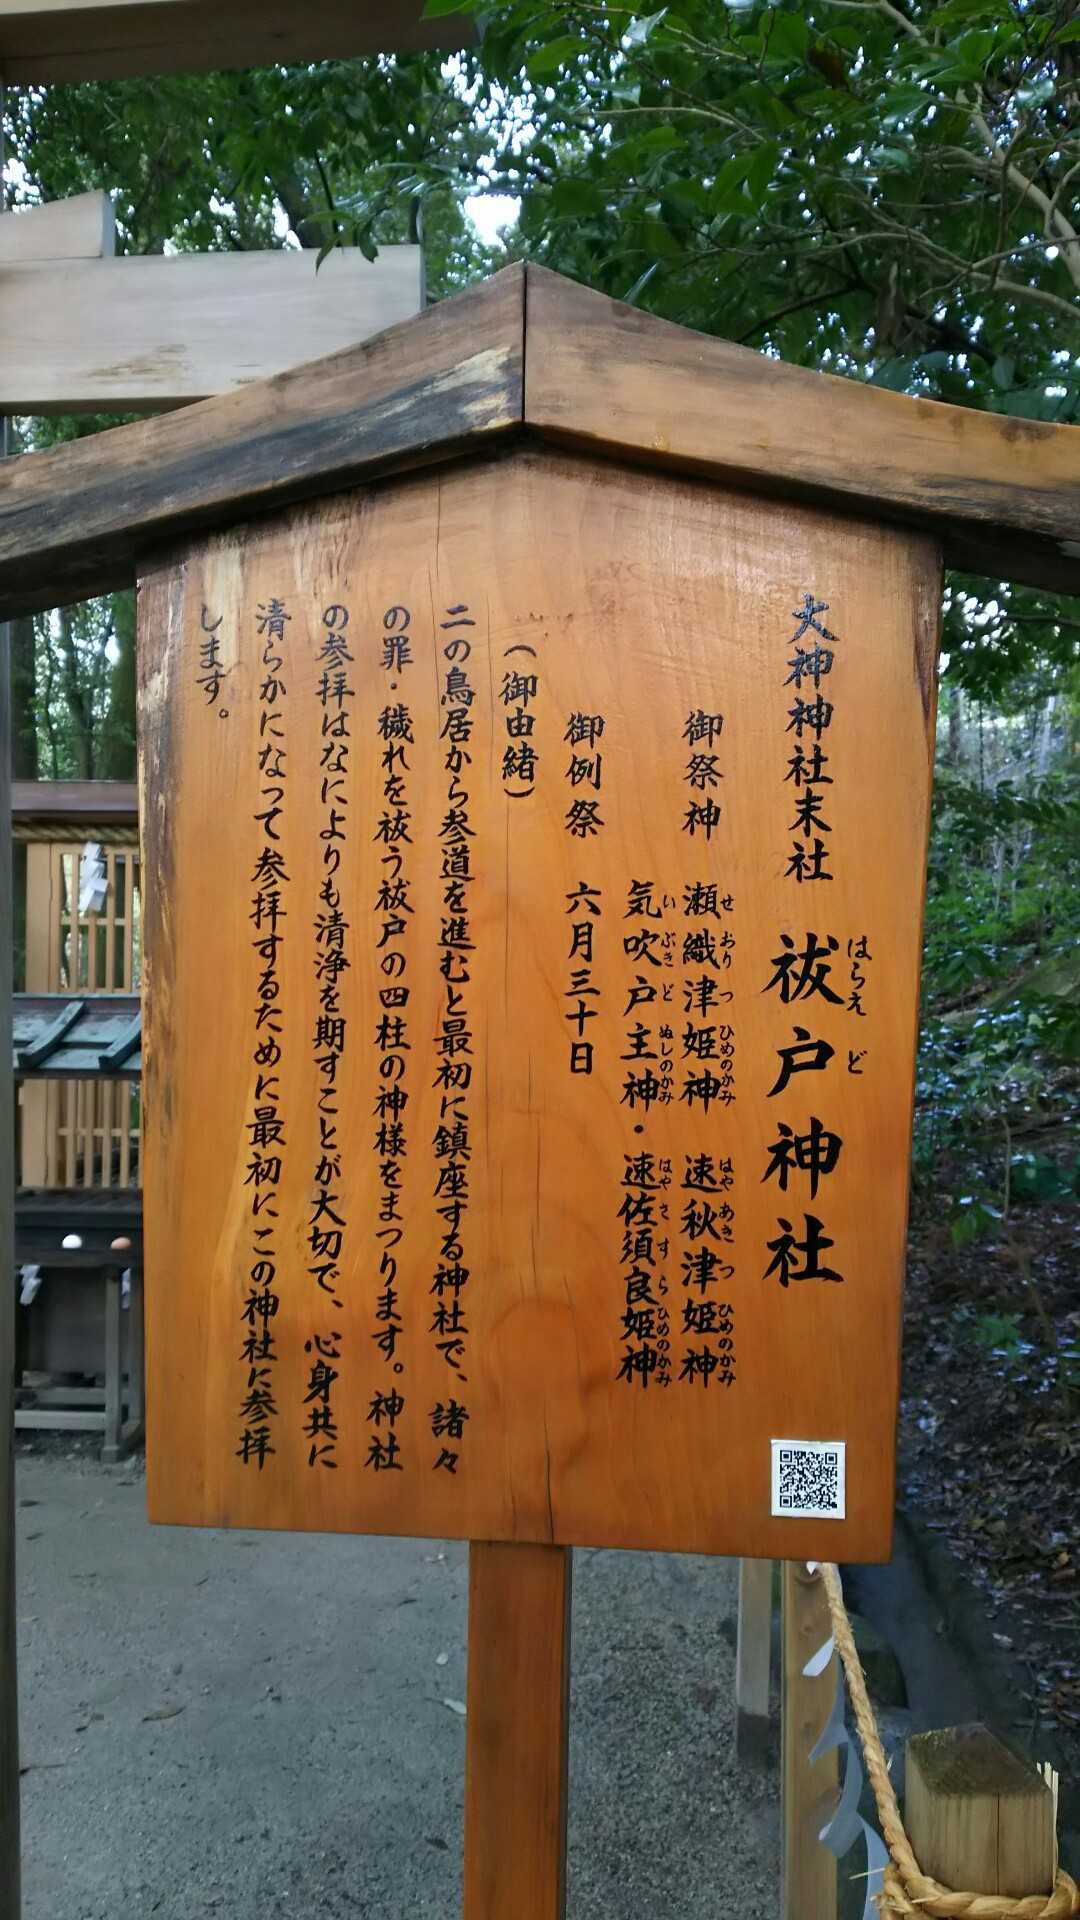 大神神社末社 祓戸神社
はらえど
御祭神 瀬織津姫神 速秋津姫神
せおりつひめのかみ はやあきつひめのかみ
気吹戸主神・速佐須良姫神
いぶきどぬしのかみ はやさすらひめのかみ
御例祭 六月三十日
(御由緒)
二の鳥居から参道を進むと最初に鎮座する神社で、諸々
の罪・穢れを祓う祓戸の四柱の神様をまつります。神社
の参拝はなによりも清浄を期すことが大切で、心身共に
清らかになって参拝するために最初にこの神社に参拝
します。